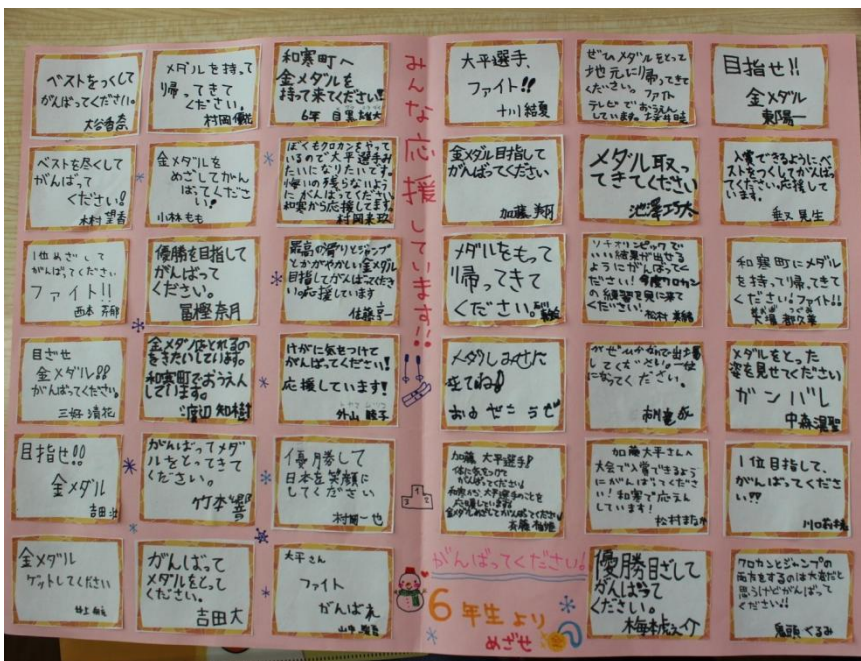 みんな応援しています!!
ベストをつくして
がんばってください。
大谷香奈
メダルを持って
帰ってきて
ください。
村岡優花
和寒町へ
金メダルを
持って来てください!!
6年 目黒雄大
ベストを尽くして
がんばって
ください!
木村望香
金メダルを
めざしてがん
ばってくださ
い!
小林もも
ぼくもクロカンをやって
いるので大平選手み
たいになりたいです。
悔いの残らないよう
にがんばってください
和寒から応援してます。
村岡来玖
1位めざして
がんばってください
ファイト!!
西本
優勝を目指して
がんばって
ください。
冨樫奈月
最高の滑りとジャンプ
とかがやかしい金メダル
目指してがんばってくださ
い。応援しています
佐藤京一
目ざせ
金メダル!!
がんばってください。
三好清花
金メダルとれるの
をきたいしています。
和寒町でおうえん
しています。
渡辺知樹
けがに気をつけて
がんばってください!
応援しています!
外山睦子
目指せ!!
金メダル
吉田壮
がんばってメダ
ルをとってきて
ください。
竹本響
優勝して
日本を笑顔に
してください
村岡一也
金メダル
ゲットしてください
井上
がんばって
メダルをとっし
ください。
吉田大
大平さん
ファイト
がんばれ
山中
大平選手、
ファイト!!
十川結夏
ぜひメダルをとって
地元に帰ってきて
ください。ファイト
テレビでおうえん
しています。
目指せ!!
金メダル
東陽一
金メダル目指して
がんばってください
加藤
メダル取っ
てきてください
池澤巧太
入賞できるようにベ
ストをつくしてがんばっ
てください応援して
います。
見生
メダルをもって
帰ってきて
ください。
ソチオリンピックで
いい結果が出せる
ようにがんばってく
ださい!今度クロカン
の練習を見に来て
ください!
松村
和寒町にメダル
を持って帰ってきて
ください!ファイト!!
大場
メダルをとった
姿を見せてください
ガンバレ
中森温聖
加藤大平選手!
体に気をつけて
がんばってください!
和寒から、大平選手のことを
応援しています!
金メダルめざしてがんばってください!
斉藤柚姫
加藤大平さんへ
大会で入賞できるよう
にがんばってくださ
い!和寒で応えん
しています!
松村まなか
1位目指して、
がんばってくださ
い!!
川口
がんばってください!
優勝目ざして
がんばって
ください。
梅村虎之介
クロカンとジャンプの
両方をするのは大変だと
思うけどがんばって
ください!!
鳥頭くるみ
6年生より
めざせ